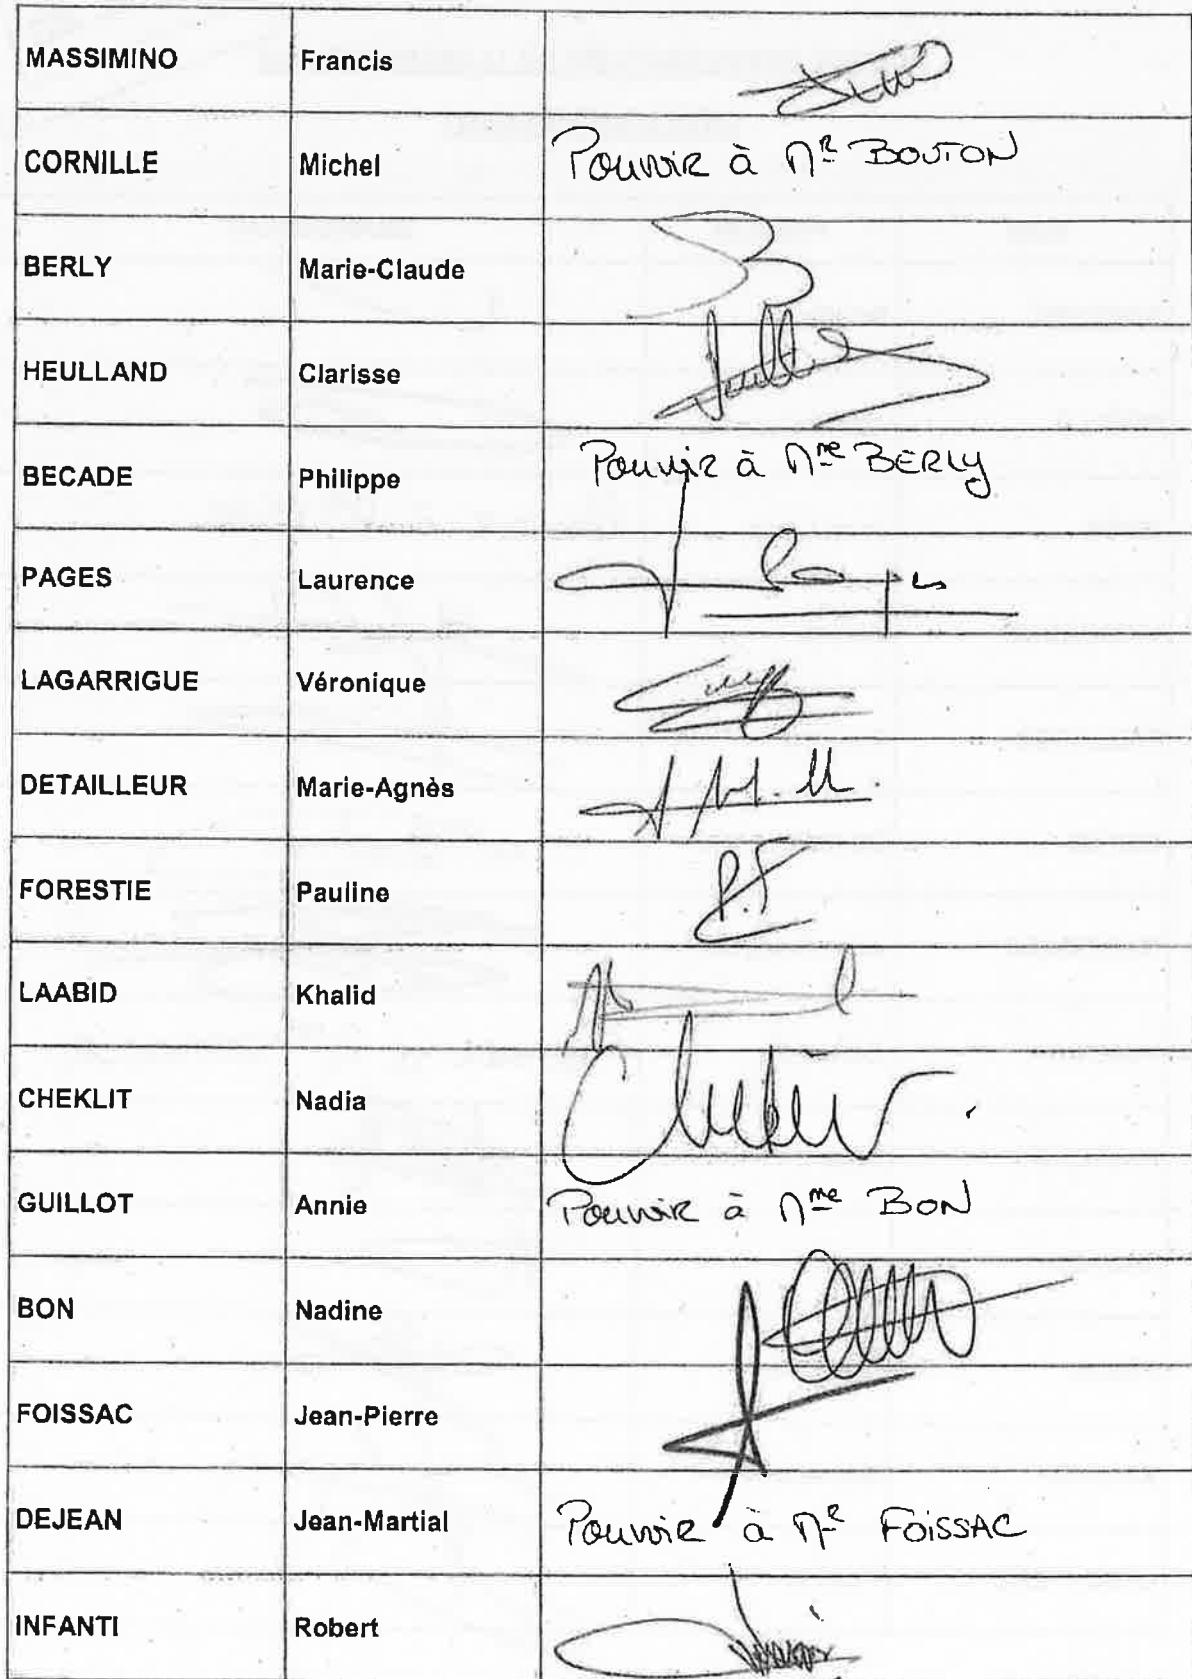 MASSIMINO Francis
CORNILLE Michel Pouvoir à Mr BOUTON
BERLY Marie-Claude
HEULLAND Clarisse
BECADE Philippe Pouvoir à Mme BERLY
PAGES Laurence
LAGARRIGUE Véronique
DETAILLEUR Marie-Agnès
FORESTIE Pauline P.F
LAABID Khalid
CHEKLIT Nadia
GUILLOT Annie Pouvoir à Mme BON
BON Nadine
FOISSAC Jean-Pierre
DEJEAN Jean-Martial Pouvoir à Mr FOISSAC
INFANTI Robert